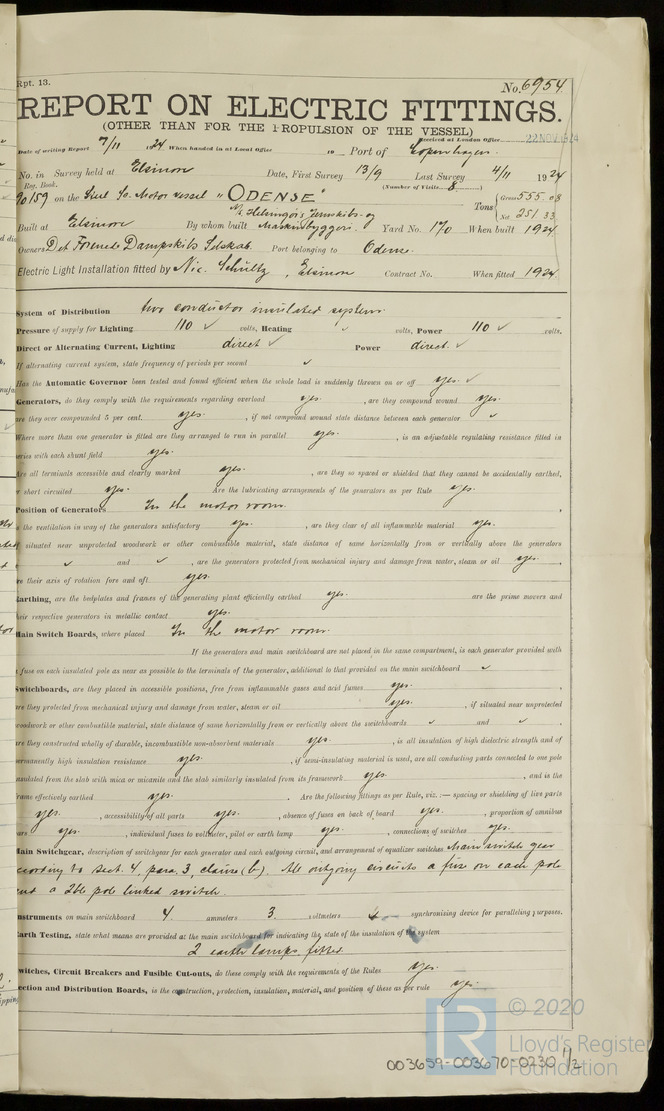 Rpt. 13.
No. 6954.
REPORT ON ELECTRIC FITTINGS.
(OTHER THAN FOR THE PROPULSION OF THE VESSEL)
Received at London Office 22 NOV 1924
Date of writing Report 7/11 1924 When handed in at Local Office 19 Port of Copenhagen.
No. in Survey held at Elsinore Date, First Survey 13/9 Last Survey 4/11 1924
Reg. Book. (Number of Visits 8)
90159 on the Steel Sc. Motor vessel "ODENSE" Tons { Gross 555.08
Net 251.33
Built at Elsinore By whom built A/S Helsingørs Jernskibs- og Maskinbyggeri. Yard No. 170 When built 1924
Owners Det Forenede Dampskibs Selskab. Port belonging to Odense.
Electric Light Installation fitted by Nic. Schultz, Elsinore Contract No. When fitted 1924
System of Distribution two conductor insulated system.
Pressure of supply for Lighting 110 ✓ volts, Heating ✓ volts, Power 110 ✓ volts.
Direct or Alternating Current, Lighting direct ✓ Power direct. ✓
If alternating current system, state frequency of periods per second ✓
Has the Automatic Governor been tested and found efficient when the whole load is suddenly thrown on or off yes. ✓
Generators, do they comply with the requirements regarding overload yes. , are they compound wound yes.
are they over compounded 5 per cent. yes. , if not compound wound state distance between each generator ✓
Where more than one generator is fitted are they arranged to run in parallel yes. , is an adjustable regulating resistance fitted in
series with each shunt field yes.
Are all terminals accessible and clearly marked yes. , are they so spaced or shielded that they cannot be accidentally earthed,
or short circuited yes. Are the lubricating arrangements of the generators as per Rule yes.
Position of Generators In the motor room.
is the ventilation in way of the generators satisfactory yes. , are they clear of all inflammable material yes.
if situated near unprotected woodwork or other combustible material, state distance of same horizontally from or vertically above the generators
✓ and ✓ , are the generators protected from mechanical injury and damage from water, steam or oil yes.
are their axis of rotation fore and aft yes.
Earthing, are the bedplates and frames of the generating plant efficiently earthed yes. are the prime movers and
their respective generators in metallic contact yes.
Main Switch Boards, where placed In the motor room.
If the generators and main switchboard are not placed in the same compartment, is each generator provided with
a fuse on each insulated pole as near as possible to the terminals of the generator, additional to that provided on the main switchboard ✓
Switchboards, are they placed in accessible positions, free from inflammable gases and acid fumes yes.
are they protected from mechanical injury and damage from water, steam or oil yes. , if situated near unprotected
woodwork or other combustible material, state distance of same horizontally from or vertically above the switchboards ✓ and ✓
are they constructed wholly of durable, incombustible non-absorbent materials yes. , is all insulation of high dielectric strength and of
permanently high insulation resistance yes. , if semi-insulating material is used, are all conducting parts connected to one pole
insulated from the slab with mica or micanite and the slab similarly insulated from its framework yes. , and is the
frame effectively earthed yes. . Are the following fittings as per Rule, viz.:— spacing or shielding of live parts
yes. , accessibility of all parts yes. , absence of fuses on back of board yes. , proportion of omnibus
bars yes. , individual fuses to voltmeter, pilot or earth lamp yes. , connections of switches yes.
Main Switchgear, description of switchgear for each generator and each outgoing circuit, and arrangement of equalizer switches Main switch gear
according to sect. 4, para. 3, clause (b). All outgoing circuits a fuse on each pole
and a dble pole linked switch.
Instruments on main switchboard 4. ammeters 3. voltmeters synchronising device for paralleling purposes.
Earth Testing, state what means are provided at the main switchboard for indicating the state of the insulation of the system
2 earth lamps fitted.
Switches, Circuit Breakers and Fusible Cut-outs, do these comply with the requirements of the Rules yes.
Section and Distribution Boards, is the construction, protection, insulation, material, and position of these as per rule yes.
© 2020
LR Lloyd's Register
Foundation
003659-003670-0230 1/2